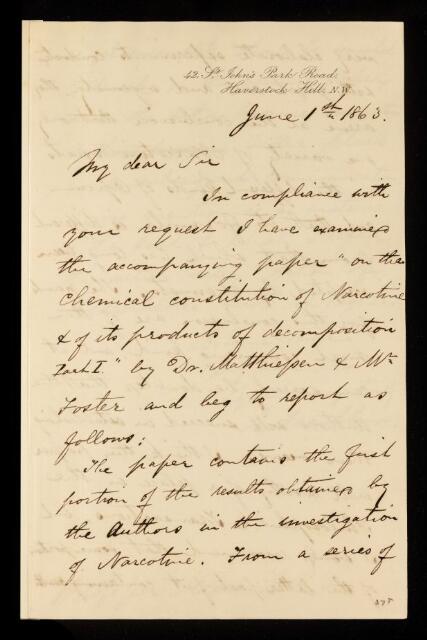 42, St. John's Park Road,
Haverstock Hill, N.W.
June 1st 1863.
My dear Sir
In compliance with
your request I have examined
the accompanying paper "on the
Chemical constitution of Narcotine
& of its products of decomposition
Part I." by Dr. Matthiessen & Mr.
Foster and beg to report as
follows:
The paper contains the first
portion of the results obtained by
the Authors in the investigation
of Narcotine. From a series of